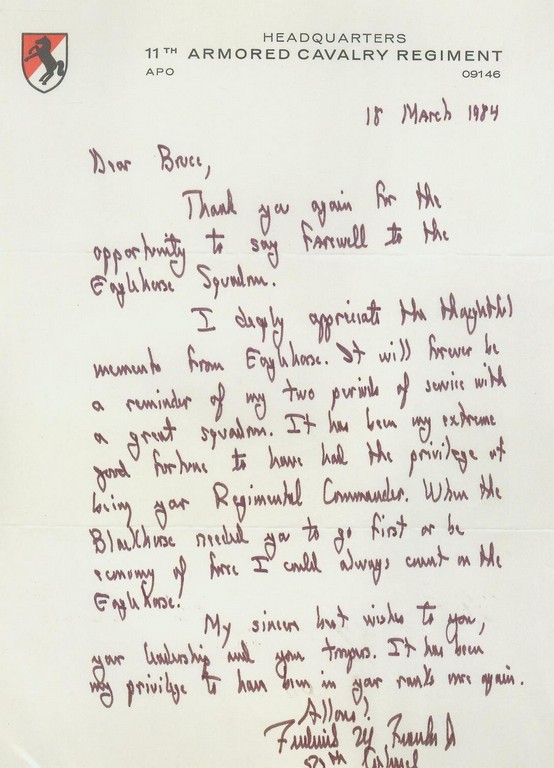 HEADQUARTERS
11TH ARMORED CAVALRY REGIMENT
APO 09146
18 March 1984
Dear Bruce,
Thank you again for the
opportunity to say farewell to the
Eaglehorse Squadron.
I deeply appreciate the thoughtful
memento from Eaglehorse. It will forever be
a reminder of my two periods of service with
a great squadron. It has been my extreme
good fortune to have had the privilege of
being your Regimental Commander. When the
Blackhorse needed you to go first or be
economy of force I could always count on the
Eaglehorse.
My sincere best wishes to you,
your leadership and your troopers. It has been
my privilege to have been in your ranks once again.
Allons!
Colonel